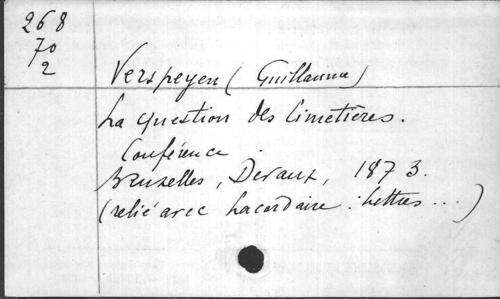 268
70
2
Verspeyen (Guillaume)
La question des Cimetières.
Conférence.
Bruxelles, Devaux, 1873.
(relié avec Lacordaire : Lettres ...)